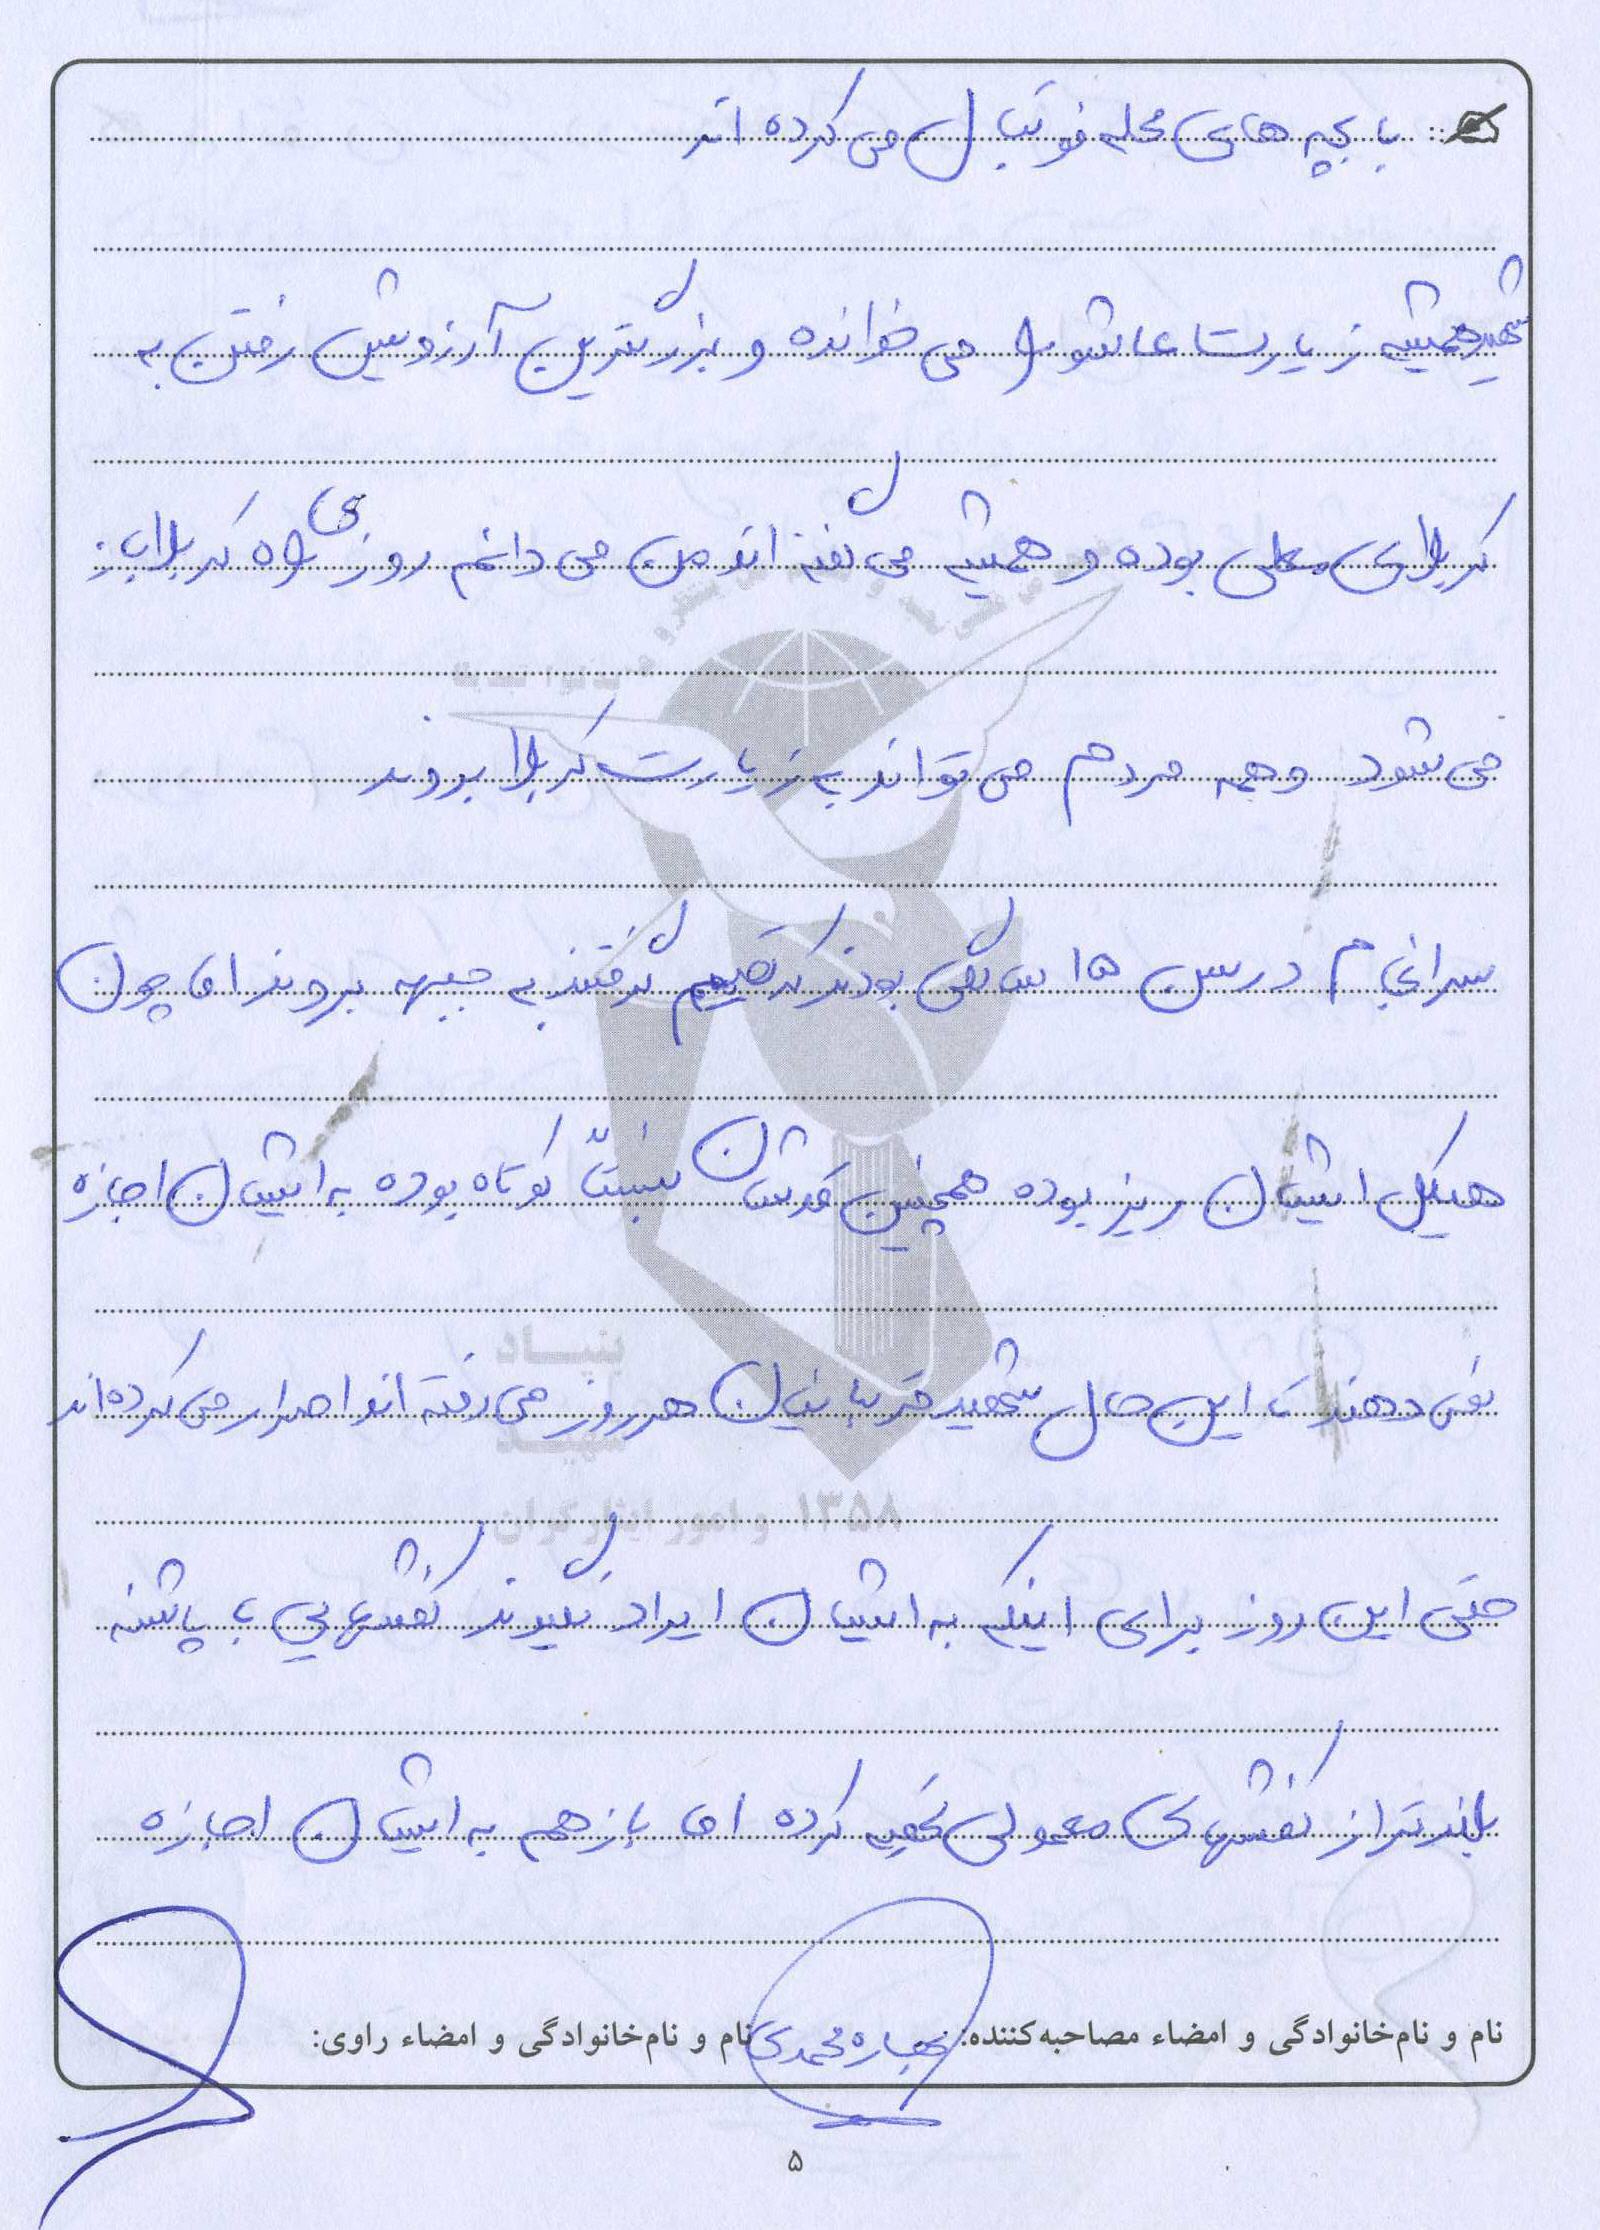 با بچه های محله فوتبال می کرده اند
شهید همیشه زیارت عاشورا می خوانده و بزرگترین آرزوشین رفتن به
کربلای معلی بوده و همیشه می گفته اند من می دانم روزی راه کربلا باز
می شود و همه مردم می تواند به زیارت کربلا بروند
سرانجام درس ها بودند که تصمیم گرفتند به جبهه بروند اما چون
هیکل ایشان ریز بوده همچنین قدشان نسبتاً کوتاه بوده به ایشان اجازه
نمی دهند با این حال شهید قربانیان هر روز می رفته اند و اصرار می کرده اند
حتی این روز برای اینکه به ایشان ایراد نگیرند کفشهایی با پاشنه
بلندتر از کفشهای معمولی تهیه کرده اما باز هم به ایشان اجازه
نام و نام‌خانوادگی و امضاء مصاحبه‌کننده: بهاره محمدی نام و نام‌خانوادگی و امضاء راوی:
۵
بنیاد
شهید
۱۳۵۸ و امور ایثارگران